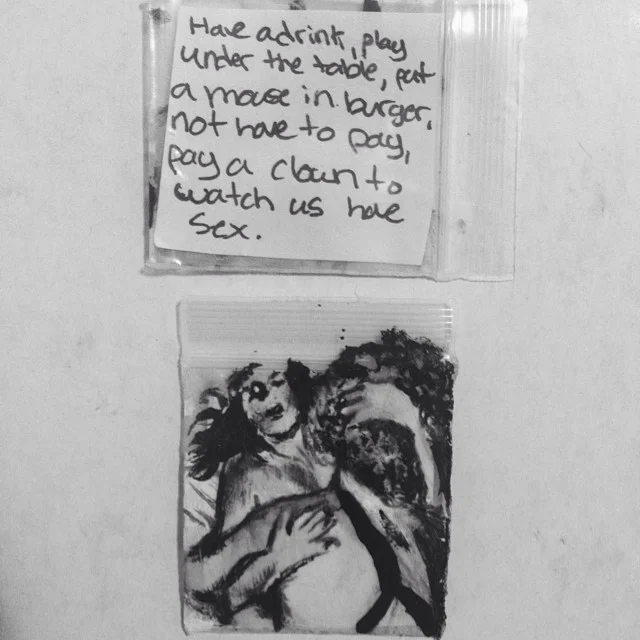 Have a drink, play
under the table, put
a mouse in burger,
not have to pay,
pay a clown to
watch us have
sex.